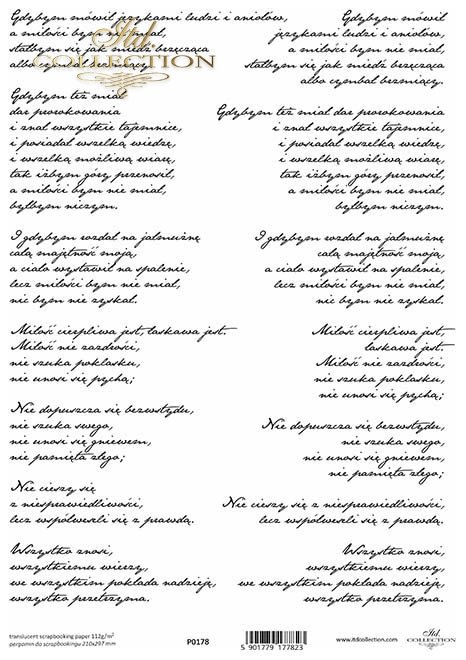 Gdybym mówił językami ludzi i aniołów,
a miłości bym nie miał,
stałbym się jak miedź brzęcząca
albo cymbał brzmiący.
Gdybym też miał
dar prorokowania
i znał wszystkie tajemnice,
i posiadał wszelką wiedzę,
i wszelką możliwą wiarę,
tak iżbym góry przenosił,
a miłości bym nie miał,
byłbym niczym.
I gdybym rozdał na jałmużnę
całą majętność moją,
a ciało wystawił na spalenie,
lecz miłości bym nie miał,
nic bym nie zyskał.
Miłość cierpliwa jest, łaskawa jest.
Miłość nie zazdrości,
nie szuka poklasku,
nie unosi się pychą;
Nie dopuszcza się bezwstydu,
nie szuka swego,
nie unosi się gniewem,
nie pamięta złego;
Nie cieszy się
z niesprawiedliwości,
lecz współweseli się z prawdą.
Wszystko znosi,
wszystkiemu wierzy,
we wszystkim pokłada nadzieję,
wszystko przetrzyma.
Gdybym mówił
językami ludzi i aniołów,
a miłości bym nie miał,
stałbym się jak miedź brzęcząca
albo cymbał brzmiący.
Gdybym też miał dar prorokowania
i znał wszystkie tajemnice,
i posiadał wszelką wiedzę,
i wszelką możliwą wiarę,
tak iżbym góry przenosił,
a miłości bym nie miał,
byłbym niczym.
I gdybym rozdał na jałmużnę
całą majętność moją,
a ciało wystawił na spalenie,
lecz miłości bym nie miał,
nic bym nie zyskał.
Miłość cierpliwa jest,
łaskawa jest.
Miłość nie zazdrości,
nie szuka poklasku,
nie unosi się pychą;
Nie dopuszcza się bezwstydu,
nie szuka swego,
nie unosi się gniewem,
nie pamięta złego;
Nie cieszy się z niesprawiedliwości,
lecz współweseli się z prawdą.
Wszystko znosi,
wszystkiemu wierzy,
we wszystkim pokłada nadzieję,
wszystko przetrzyma.
Itd.
COLLECTION
translucent scrapbooking paper 112g/m²
pergamin do scrapbookingu 210x297 mm
P0178
5 901779 177823
www.itdcollection.com
Itd.
COLLECTION